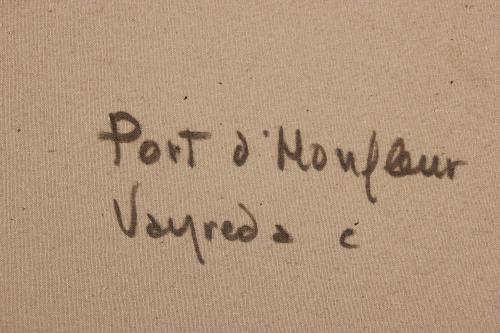 Port d'Honfleur
Vayreda c